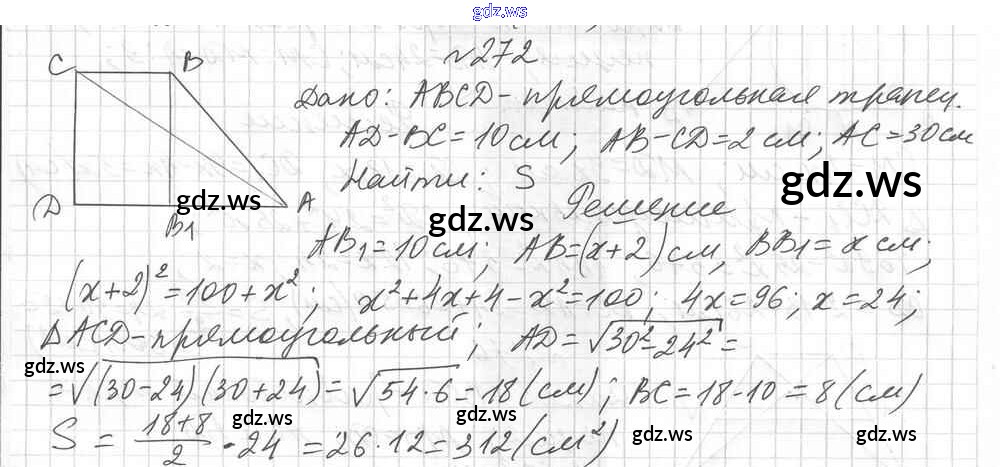 gdz.ws
№272
C B
Дано: ABCD - прямоугольная трапец.
AD-BC=10см; AB-CD=2см; AC=30см
gdz.ws
Найти: S
D gdz.ws A
B₁
gdz.ws
Решение
AB₁=10см; AB=(x+2)см, BB₁=x см;
(x+2)²=100+x²; x²+4x+4-x²=100; 4x=96; x=24;
gdz.ws gdz.ws
ΔACD-прямоугольный; AD=√30²-24²=
gdz.ws gdz.ws gdz.ws
=√(30-24)(30+24)=√54·6=18(см); BC=18-10=8(см)
S = 18+8/2 · 24 = 26·12=312(см²)
gdz.ws gdz.ws gdz.ws